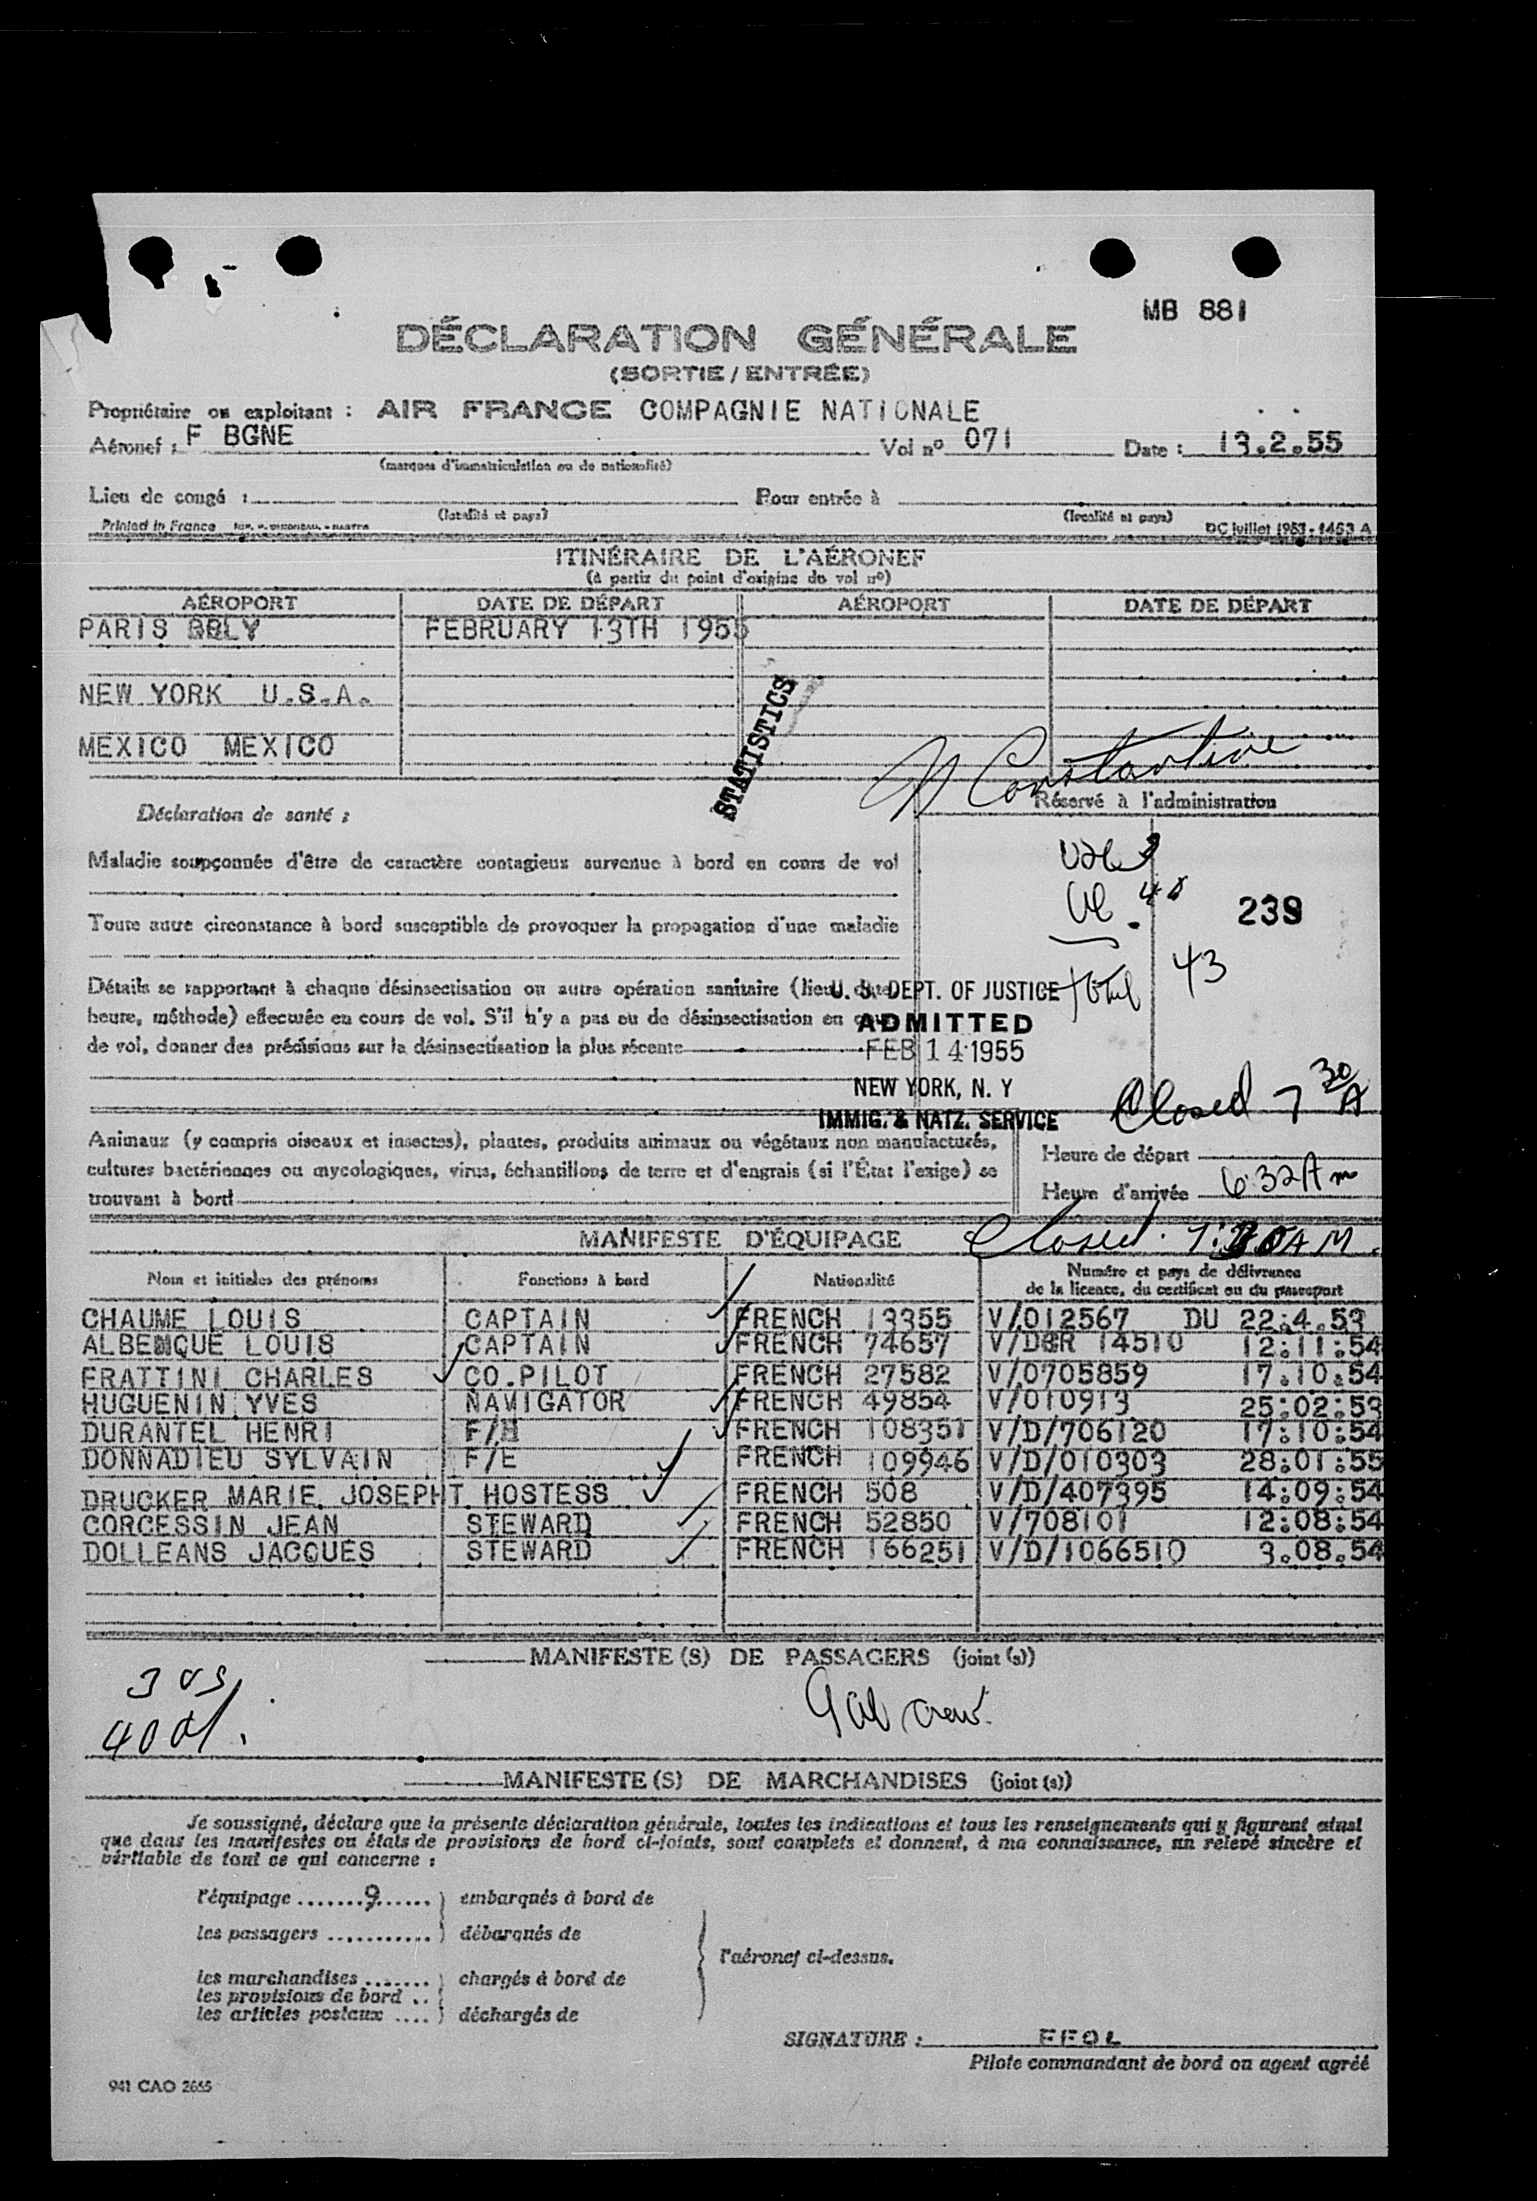 MB 881
DÉCLARATION GÉNÉRALE
(SORTIE / ENTRÉE)
Propriétaire ou exploitant : AIR FRANCE COMPAGNIE NATIONALE
Aéronef : F BGNE Vol nº 071 Date : 13.2.55
(marques d'immatriculation ou de nationalité)
Lieu de congé : Pour entrée à
(localité et pays) (localité et pays)
Printed in France DC juillet 1953 - 1453 A
ITINÉRAIRE DE L'AÉRONEF
(à partir du point d'origine du vol nº)
AÉROPORT DATE DE DÉPART AÉROPORT DATE DE DÉPART
PARIS ORLY FEBRUARY 13TH 1955
NEW YORK U.S.A.
MEXICO MEXICO
STATISTICS
Constantine
Réservé à l'administration
Déclaration de santé :
Maladie soupçonnée d'être de caractère contagieux survenue à bord en cours de vol
40
239
Toute autre circonstance à bord susceptible de provoquer la propagation d'une maladie
total 43
Détails se rapportant à chaque désinsectisation ou autre opération sanitaire (lieu, date,
heure, méthode) effectuée en cours de vol. S'il n'y a pas eu de désinsectisation en cours
de vol, donner des précisions sur la désinsectisation la plus récente
U. S. DEPT. OF JUSTICE
ADMITTED
FEB 14 1955
NEW YORK, N. Y
IMMIG. & NATZ. SERVICE
Closed 7 30 A
Animaux (y compris oiseaux et insectes), plantes, produits animaux ou végétaux non manufacturés,
cultures bactériennes ou mycologiques, virus, échantillons de terre et d'engrais (si l'État l'exige) se
trouvant à bord
Heure de départ
Heure d'arrivée 6:32 A m
MANIFESTE D'ÉQUIPAGE Closed 7:30 AM.
Nom et initiales des prénoms Fonctions à bord Nationalité Numéro et pays de délivrance
de la licence, du certificat ou du passeport
CHAUME LOUIS CAPTAIN FRENCH 13355 V/012567 DU 22.4.53
ALBENQUE LOUIS CAPTAIN FRENCH 74657 V/DGR 14510 12.11.54
FRATTINI CHARLES CO.PILOT FRENCH 27582 V/0705859 17.10.54
HUGUENIN YVES NAVIGATOR FRENCH 49854 V/010913 25:02:53
DURANTEL HENRI F/ FRENCH 108351 V/D/706120 17:10:54
DONNADIEU SYLVAIN F/E FRENCH 109946 V/D/010303 28:01:55
DRUCKER MARIE JOSEPHT HOSTESS FRENCH 508 V/D/407395 14:09:54
CORCESSIN JEAN STEWARD FRENCH 52850 V/708101 12:08:54
DOLLEANS JACQUES STEWARD FRENCH 166251 V/D/1066510 3.08.54
MANIFESTE(S) DE PASSAGERS (joint (s))
3
40
9 crew
MANIFESTE(S) DE MARCHANDISES (joint (s))
Je soussigné, déclare que la présente déclaration générale, toutes les indications et tous les renseignements qui y figurent ainsi
que dans les manifestes ou états de provisions de bord ci-joints, sont complets et donnent, à ma connaissance, un relevé sincère et
véritable de tout ce qui concerne :
l'équipage .......9...... embarqués à bord de
les passagers ........... débarqués de
l'aéronef ci-dessus.
les marchandises ....... chargés à bord de
les provisions de bord ..
les articles postaux .... déchargés de
SIGNATURE : FEOL
Pilote commandant de bord ou agent agréé
941 CAO 2655